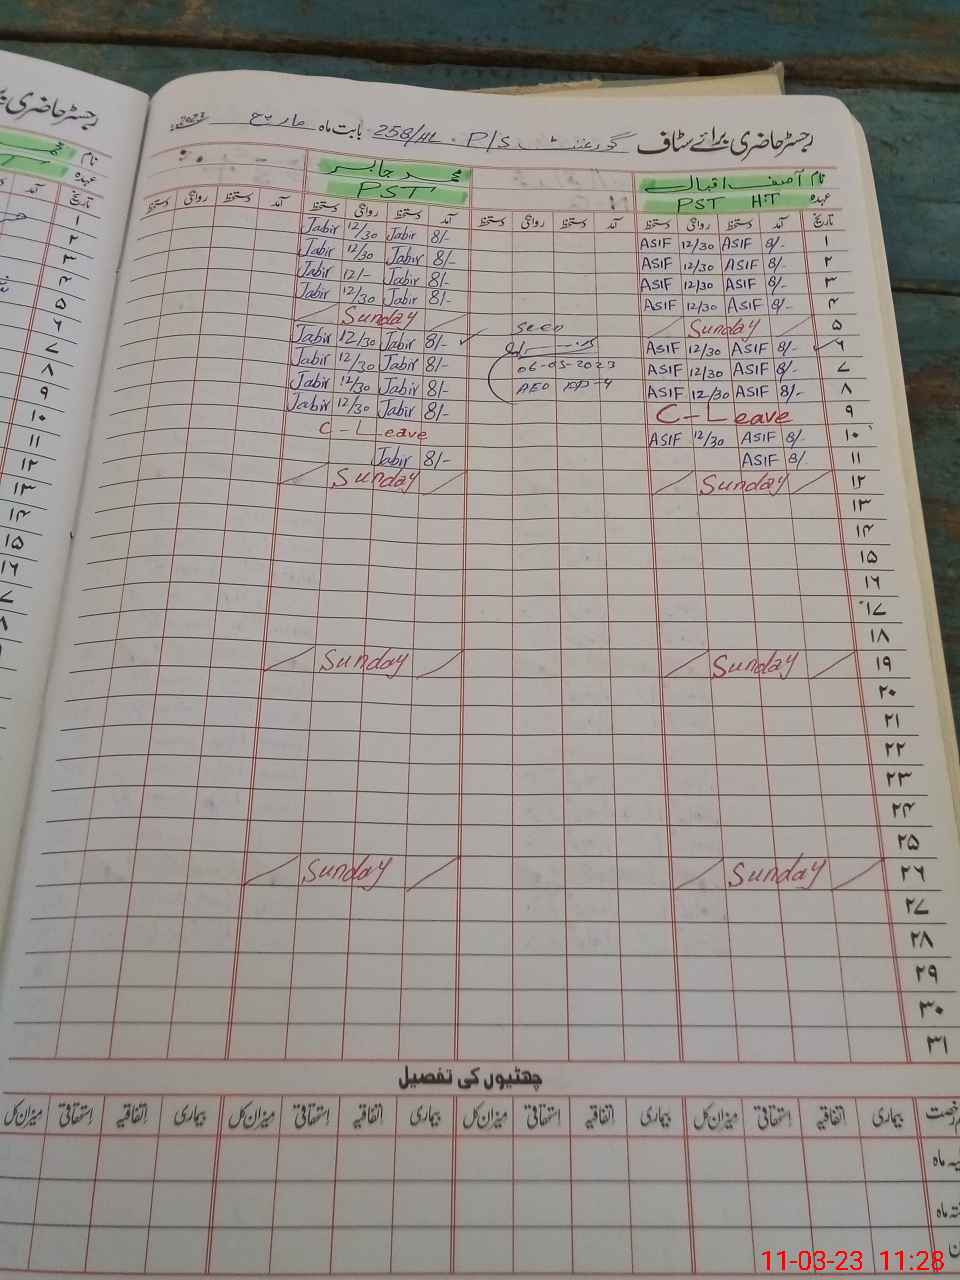 رجسٹر حاضری برائے سٹاف گورنمنٹ P/S 258/HL بابت ماہ مارچ 2023
نام آصف اقبال محمد جابر
عہدہ PST HT PST
تاریخ آمد دستخط روانگی دستخط آمد دستخط روانگی دستخط آمد دستخط روانگی دستخط آمد دستخط روانگی دستخط
۱ 8/- ASIF 12/30 ASIF 8/- Jabir 12/30 Jabir
۲ 8/- ASIF 12/30 ASIF 8/- Jabir 12/30 Jabir
۳ 8/- ASIF 12/30 ASIF 8/- Jabir 12/- Jabir
۴ 8/- ASIF 12/30 ASIF 8/- Jabir 12/30 Jabir
۵ Sunday Seen Sunday
۶ 8/- ASIF 12/30 ASIF 8/- Jabir 12/30 Jabir
۷ 8/- ASIF 12/30 ASIF 06-03-2023 8/- Jabir 12/30 Jabir
۸ 8/- ASIF 12/30 ASIF AEO 8/- Jabir 12/30 Jabir
۹ C-Leave 8/- Jabir 12/30 Jabir
۱۰ 8/- ASIF 12/30 ASIF C-Leave
۱۱ 8/- ASIF 8/- Jabir
۱۲ Sunday Sunday
۱۳
۱۴
۱۵
۱۶
۱۷
۱۸
۱۹ Sunday Sunday
۲۰
۲۱
۲۲
۲۳
۲۴
۲۵
۲۶ Sunday Sunday
۲۷
۲۸
۲۹
۳۰
۳۱
چھٹیوں کی تفصیل
رخصت بیماری اتفاقیہ استحقاقی میزان کل بیماری اتفاقیہ استحقاقی میزان کل بیماری اتفاقیہ استحقاقی میزان کل بیماری اتفاقیہ استحقاقی میزان کل
ماہ
ماہ
رجسٹر حاضری
نام
عہدہ
تاریخ آمد
۱
۲
۳
۵
۶
۷
۸
۹
۱۰
۱۱
۱۲
۱۳
۱۴
۱۵
۱۶
11-03-23 11:28